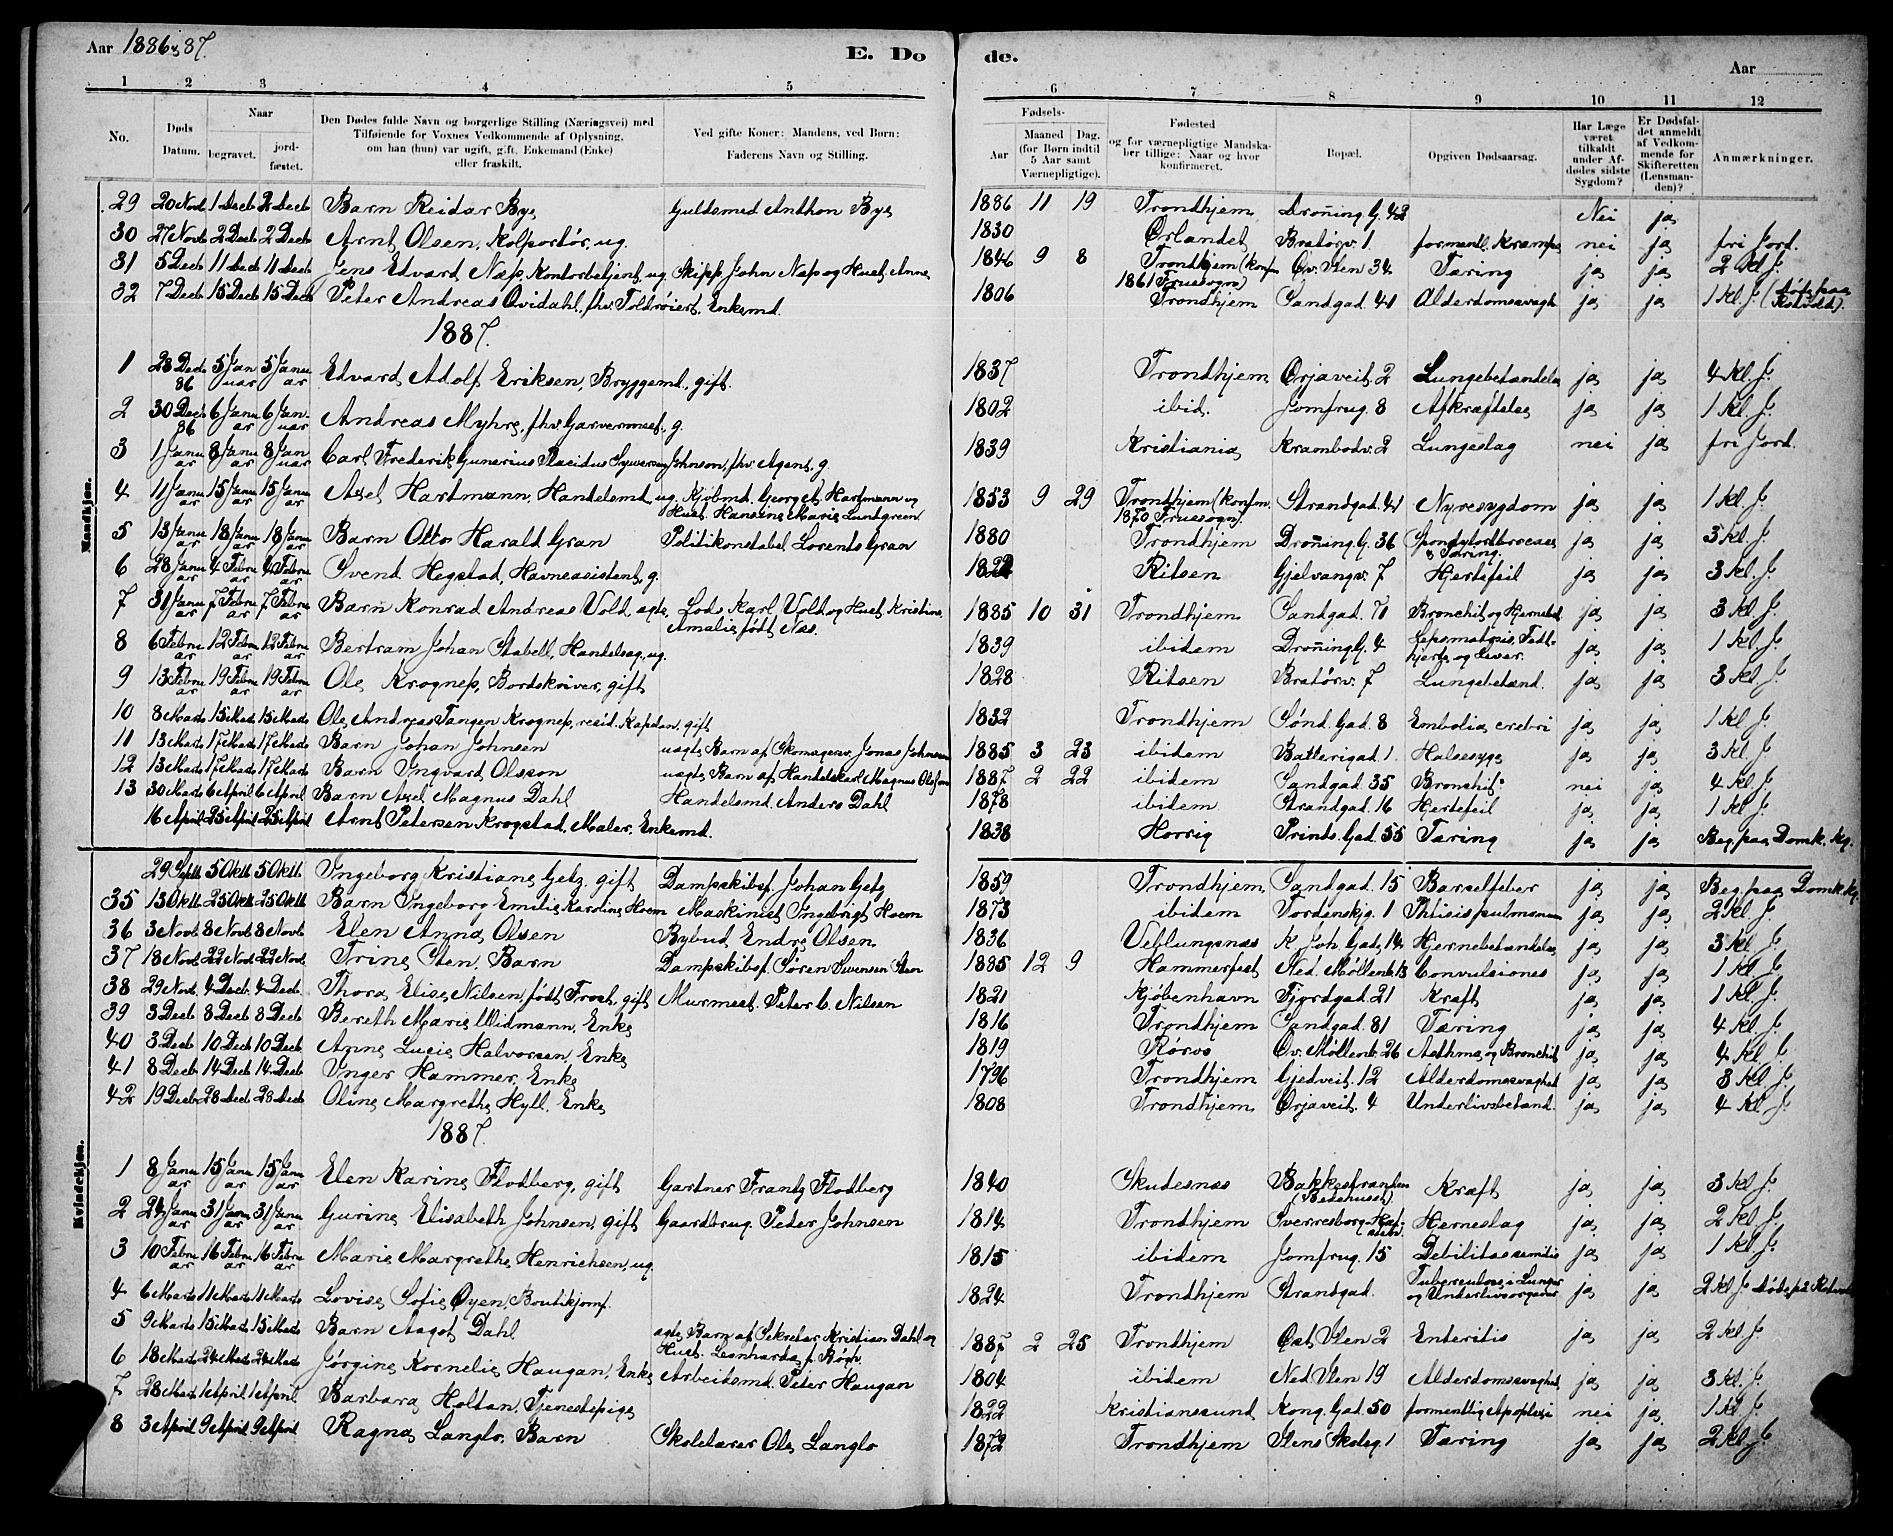 Aar 1886 & 87.
E. Do de.
Aar
1 2 3 4 5 6 7 8 9 10 11 12
No.
Døds Datum.
Naar
begravet.
jordfæstet.
Den Dødes fulde Navn og borgerlige Stilling (Næringsvei) med
Tilføiende for Voxnes Vedkommende af Oplysning,
om han (hun) var ugift, gift, Enkemand (Enke)
eller fraskilt.
Ved gifte Koner: Mandens, ved Børn:
Faderens Navn og Stilling.
Fødsels-
Aar
Maaned Dag.
(for Børn indtil
5 Aar samt
Værnepligtige).
Fødested
og for værnepligtige Mandska-
ber tillige: Naar og hvor
konfirmeret.
Bopæl.
Opgiven Dødsaarsag.
Har Læge
været
tilkaldt
under Af-
dødes sidste
Sygdom?
Er Dødsfal-
det anmeldt
af Vedkom-
mende for
Skifteretten
(Lensman-
den)?
Anmærkninger.
Mandkjøn.
29 20 Novb 1 Decb 2 Decb Barn Reidar Bye Guldsmed Anthon Bye 1886 11 19 Trondhjem Dronning G. 42 Nei ja
30 27 Novb 2 Decb 2 Decb Arnt Olsen, Kolportør, ug. 1830 Ørlandet Bratørv. 1. formentl. Krampe nei ja fri Jord.
31 5 Decb 11 Decb 11 Decb Jens Edvard Næss, Kontorbetjent, ug. Skipp. John Næss og Hust. Anne 1846 9 8 Trondhjem (konf. 1861 Fruesogn) Øv. Sten 34 Tæring ja ja 2 Kl. J.
32 7 Decb 15 Decb 15 Decb Peter Andreas Qvidahl, fhv. Toldroiert, Enkemd. 1806 Trondhjem Sandgad. 41 Alderdomssvagh. ja ja 1 Kl. J. (døde paa Rotvold).
1887.
1 28 Decb 86 5 Januar 5 Januar Edvard Adolf Eriksen, Bryggemd., gift. 1837 Trondhjem Ørjaveit. 2 Lungebetændelse ja ja 4 Kl. J.
2 30 Decb 86 6 Januar 6 Januar Andreas Myhre, fhv. Garvermest., g. 1802 ibid. Jomfrug. 8 Afkræftelse ja ja 1 Kl. J.
3 1 Januar 8 Januar 8 Januar Carl Frederik Gunerius Placidus Syversen Johnson, fhv. Agent, g. 1839 Kristiania Krambodv. 2 Lungeslag nei ja fri Jord.
4 11 Januar 15 Januar 15 Januar Axel Hartmann, Handelsmd, ug. Kjøbmd. Georg Hartmann og Hust. Hansine Marie Lundgreen 1853 9 29 Trondhjem (konfm. 1870 Fruesogn). Strandgad. 41 Nyresygdom ja ja 1 Kl. J.
5 13 Januar 18 Januar 18 Januar Barn Otto Harald Gran Politikonstabel Lorents Gran 1880 Trondhjem Dronning G. 36 & Tæring. ja ja 3 Kl. J.
6 28 Januar 4 Februar 4 Februar Svend Hegstad, Havneassistent, g. Ritsen Gjelvangv. 7 Hjertefeil ja ja 3 Kl. J.
7 31 Januar 7 Februar 7 Februar Barn Konrad Andreas Vold, ægte, Lods Karl Vold og Hust. Kristine Amalie født Næs. 1885 10 31 Trondhjem Sandgad. 71 Bronchit og Hjernebet. ja ja 3 Kl. J.
8 6 Februar 12 Februar 12 Februar Bertram Johan Stabell, Handelsag., ug. 1839 ibidem Dronning G. 4 Fedt- hjerte og Lever. ja ja 1 Kl. J.
9 13 Februar 19 Februar 19 Februar Ole Krogness, Bordskriver, gift 1828 Ritsen Bratørv. 7 Lungebetænd. ja ja 3 Kl. J.
10 8 Marts 15 Marts 15 Marts Ole Andreas Tangen Krogness, resid. Kapelan, gift 1832 Trondhjem Sønd. Gad. 8 Embolia crebri ja ja 1 Kl. J.
11 13 Marts 17 Marts 17 Marts Barn Johan Johnsen uægte Barn af Skomagersv. Jonas Johnsen 1885 3 23 ibidem Batterigad. 1. Halssyge ja ja 3 Kl. J.
12 13 Marts 17 Marts 17 Marts Barn Ingvard Olsson uægte Barn af Handelskarl Magnus Olsson 1887 2 22 ibidem Sandgad. 35 Bronchit nei ja 4 Kl. J.
13 30 Marts 6 April 6 April Barn Axel Magnus Dahl Handelsmd. Anders Dahl 1878 ibidem Strandgad. 16 Hjertefeil ja ja 1 Kl. J.
16 April 25 April 25 April Arnt Petersen Krogstad, Maler, Enkemd. 1838 Horrig Prinds. Gad. 55 Tæring ja ja Beg. paa Domk. Kg.
Kvindekjøn.
29 Septb. 5 Oktb. 5 Oktb. Ingeborg Kristiane Getz, gift Dampskibsf. Johan Getz 1859 Trondhjem Sandgad. 15 Barselfeber ja ja Beg. paa Domk. Kg.
35 13 Oktb. 25 Oktb. 25 Oktb. Barn Ingeborg Emilie Karoline Hoem Maskinist Ingebrigt Hoem 1873 ibidem Tordenskjg. 1 Phtisis pulmonum ja ja 2 Kl. J.
36 3 Novb. 8 Novb. 8 Novb. Elen Anna Olsen Bybud Endre Olsen. 1836 Veblungsnæs K. Joh. Gad. 14 Hjernebetændelse ja ja 3 Kl. J.
37 18 Novb. 22 Novb. 22 Novb. Trine Sten, Barn Dampskibsf. Søren Svensen Sten 1885 12 9 Hammerfest Ned. Møllenb. 13 Convulsiones ja ja 1 Kl. J.
38 29 Novb. 4 Decb. 4 Decb. Thora Elise Nilsen, født Frost, gift Murmest. Peter C. Nilsen 1821 Kjøbenhavn Fjordgad. 21 Kræft ja ja 1 Kl. J.
39 3 Decb. 8 Decb. 8 Decb. Bereth Marie Widmann, Enke 1816 Trondhjem Sandgad. 81 Tæring ja ja 4 Kl. J.
40 3 Decb. 10 Decb. 10 Decb. Anne Lucie Halvorsen, Enke 1819 Røros Øv. Møllenb. 26 Asthma og Bronchit ja ja 4 Kl. J.
41 8 Decb. 14 Decb. 14 Decb. Inger Hammer, Enke 1796 Trondhjem Gjedveit. 12 Alderdomssvaghed ja ja 3 Kl. J.
42 19 Decb. 28 Decb. 28 Decb. Oline Margrethe Hyll, Enke 1808 Trondhjem Ørjaveit. 4 Underlivsbetænd. ja ja 4 Kl. J.
1887.
1 8 Januar 15 Januar 15 Januar Elen Karine Flodberg, gift Gartner Frantz Flodberg 1840 Skudesnæs Bakkestranden (Bedehuset) Kræft ja ja 3 Kl. J.
2 24 Januar 31 Januar 31 Januar Gurine Elisabeth Johnsen, gift Gaardbrug. Peder Johnsen 1814 Trondhjem Sverresborg Hjerneslag ja ja 2 Kl. J.
3 10 Februar 16 Februar 16 Februar Marie Margrethe Henrichsen, ug. 1815 ibidem Jomfrug. 15 Debilitas senilis ja ja 1 Kl. J.
4 6 Marts 11 Marts 11 Marts Lovise Sofie Øyen, Boutikjomf. 1824 Trondhjem Strandgad. Tuberculose i Lunger og Underlivsorganer ja ja 2 Kl. J. døde på Rotvold
5 9 Marts 15 Marts 15 Marts Barn Aagot Dahl ægte Barn af Sekretær Kristian Dahl og Hust. Leonharda f. Bögh. 1887 2 25 Trondhjem Øst. Sten 2 Enteritis ja ja 2 Kl. J.
6 18 Marts 24 Marts 24 Marts Jørgine Kornelie Haugan, Enke Arbeidsmd. Peter Haugan 1804 ibidem Ned Sten 19 Alderdomssvaghed ja ja 3 Kl. J.
7 28 Marts 1 April 1 April Barbara Holtan, Tjenestepige 1822 Kristianssund Kong. Gad. 50 formentlig Apoplexi nei ja 1 Kl. J.
8 3 April 9 April 9 April Ragna Langlo, Barn Skolelærer Ole Langlo 1872 Trondhjem Stens Skoleg. 1 Tæring ja ja 2 Kl. J.